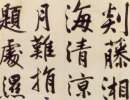 剡藤湘
海清涼
月難
題處濕